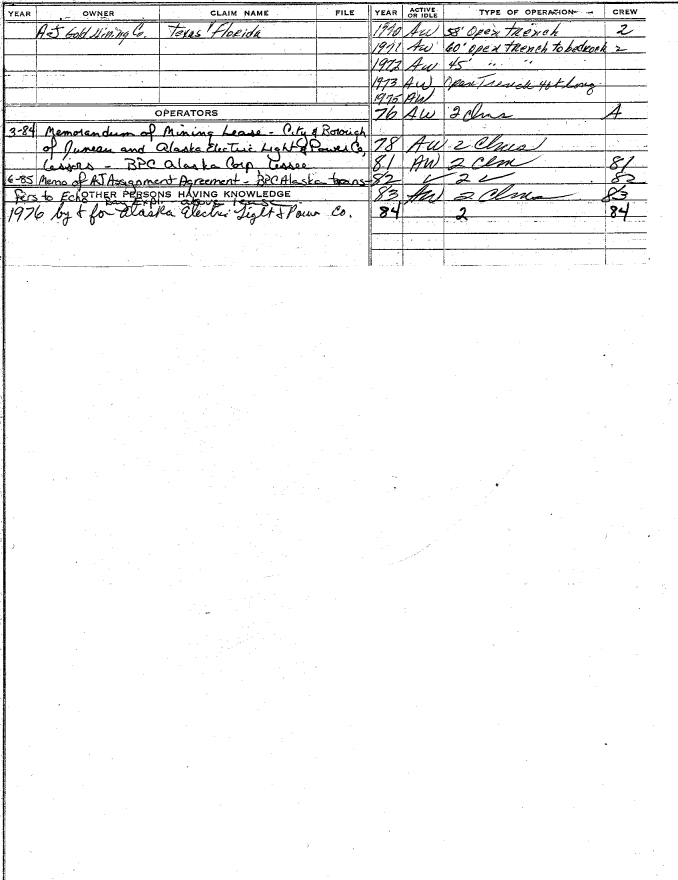 YEAR OWNER CLAIM NAME FILE
A-J Gold Mining Co. Texas Florida
OPERATORS
3-84 Memorandum of Mining Lease - City & Borough
of Juneau and Alaska Electric Light & Power Co,
Lessors - BPC Alaska Corp, Lessee
6-85 Memo of AJ Assignment Agreement - BPC Alaska trans-
fers to Echo
Bay Expl. above lease
OTHER PERSONS HAVING KNOWLEDGE
1976 by & for Alaska Electric Light & Power Co.
YEAR ACTIVE OR IDLE TYPE OF OPERATION CREW
1970 AW 58' Open Trench 2
1971 AW 60' open trench to bedrock 2
1972 AW 45' " "
1973 AW, Open Trench 40 ft long
1975 AW
76 AW 2 clms A
78 AW 2 Clms
81 AW 2 Clm 81
82 ✓ 2 ✓ 82
83 AW 2 Clms 83
84 2 84